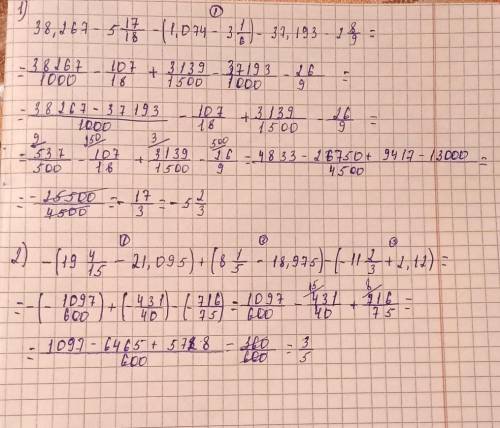 1) 38,267 - 5 17/18 - (1,074 - 3 1/6) - 37,193 - 2 8/9 =
①
= 38267/1000 - 107/18 + 3139/1500 - 37193/1000 - 26/9 =
= 38267 - 37193/1000 - 107/18 + 3139/1500 - 26/9 =
9 250 3 500
= 537/500 - 107/18 + 3139/1500 - 26/9 = 4833 - 26750 + 9417 - 13000/4500 =
= - 25500/4500 = - 17/3 = - 5 2/3
① ② ③
2) - (19 4/15 - 21,095) + (8 1/5 - 18,975) - (-11 2/3 + 2,12) =
15 8
= - (- 1097/600) + (- 431/40) - (- 716/75) = 1097/600 - 431/40 + 716/75 =
= 1097 - 6465 + 5728/600 = 360/600 = 3/5